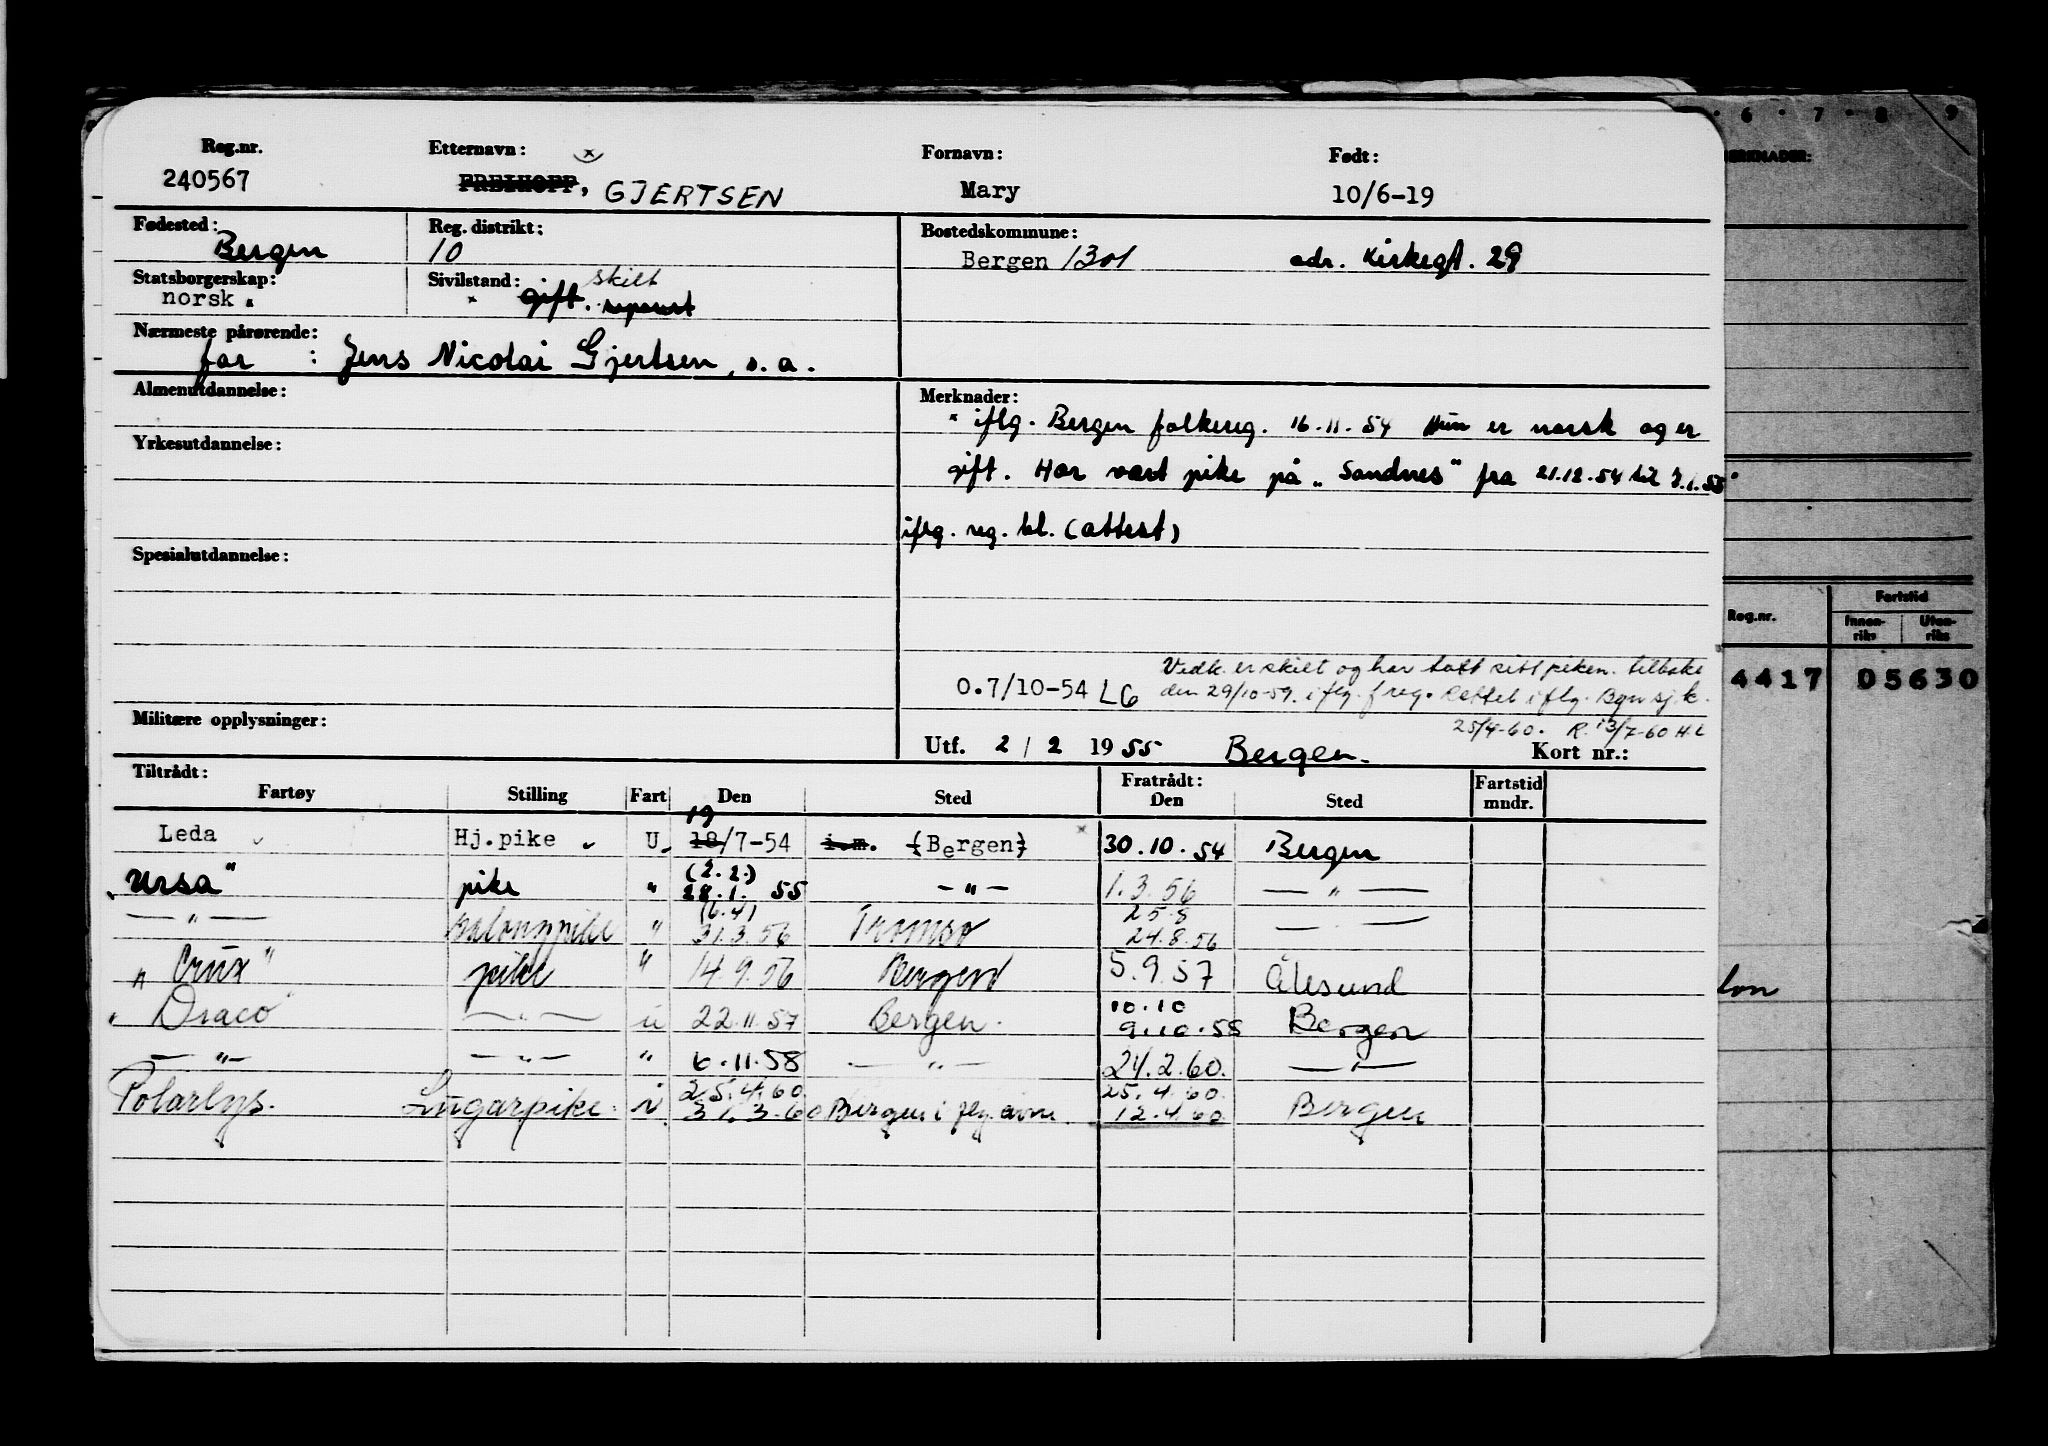 6 · 7 · 8 9
Reg.nr. Etternavn: x Fornavn: Født:
240567 FREIHOFF, GJERTSEN Mary 10/6-19
Fødested: Reg. distrikt: Bostedskommune:
Bergen 10 Bergen 1301 adr. Kirkegt. 29
Statsborgerskap: Sivilstand: skilt
norsk. x gift. separert
Nærmeste pårørende:
far : Jens Nicolai Gjertsen, s.a.
Almenutdannelse: Merknader:
x iflg. Bergen folkereg. 16.11.54 Hun er norsk og er
Yrkesutdannelse:
gift. Har vært pike på "Sandnes" fra 21.12.54 til 3.1.55
iflg. reg. bl. (attest)
Spesialutdannelse:
Vedk. er skilt og har tatt sitt piken. tilbake
0.7/10-54 LG den 29/10-59. iflg. freg. Rettet iflg. Bgn sj.k.
Militære opplysninger: 25/4-60. R. 13/7-60 H.L
Utf. 2 / 2 19 55 Bergen. Kort nr.:
Tiltrådt: Fratrådt:
Fartøy Stilling Fart Den Sted Den Sted Fartstid mndr.
19
Leda Hj.pike U. 18/7-54 i.m. (Bergen) x 30.10.54 Bergen
(2.2.)
"Ursa" pike " 28.1. 55 — " — 1.3.56 — " —
(6.4) 25.8
— " — Salongpike " 31.3.56 Tromsø 24.8.56 — " —
"Crux" pike " 14.9.56 Bergen 5.9.57 Ålesund
10.10
"Draco" — " — u 22.11.57 Bergen. 9.10.58 Bergen
— " — — " — " 6.11.58 — " — 24.2.60. — " —
25.4.60. 25.4.60.
Polarlys. Lugarpike. i 31.3.60 Bergen i flg. 12.4.60 Bergen
MERKNADER:
Reg.nr. Fartstid
Innen-riks Uten-riks
4417 05630